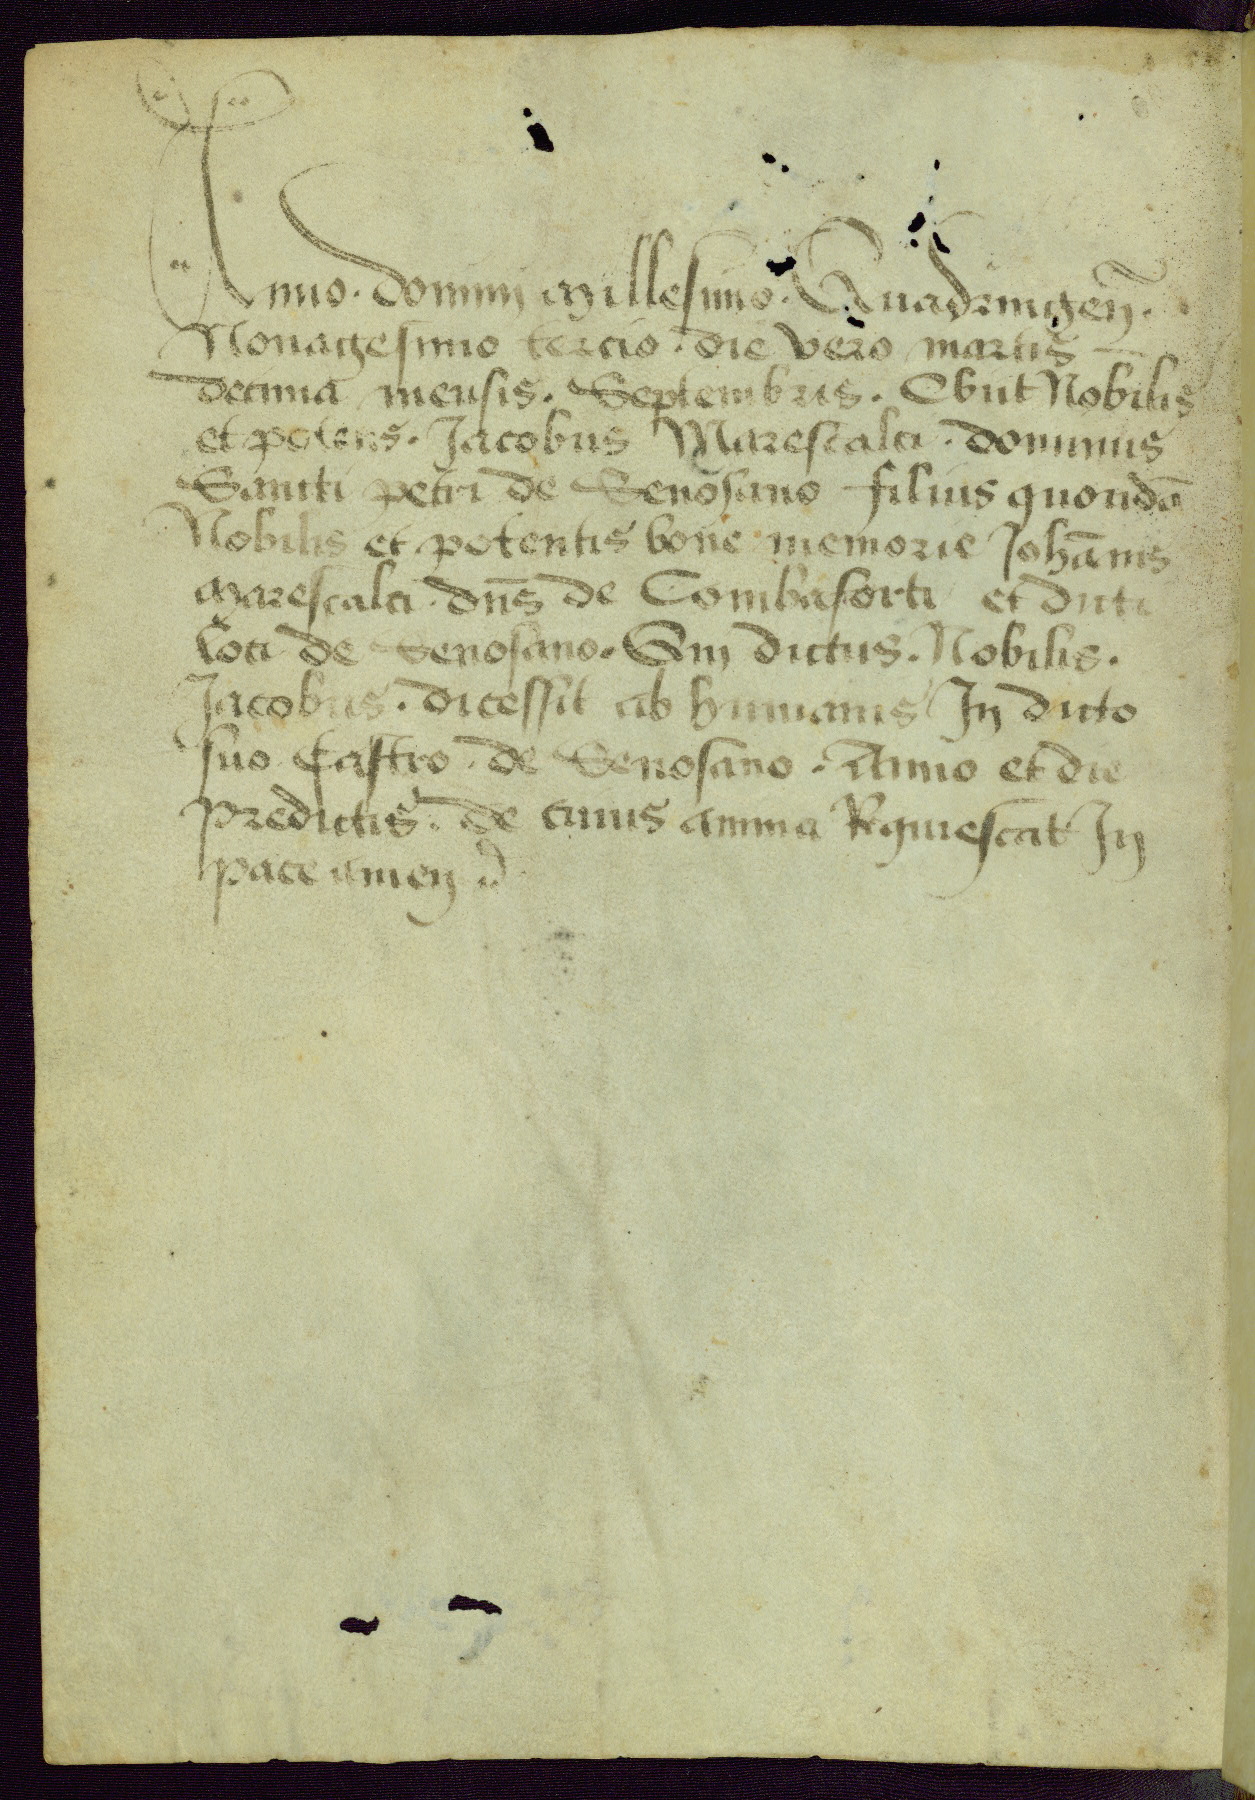 Anno. domini millesimo. Quadringeñ.
Nonagesimo tercio. die vero martis
decima mensis. Septembris. Obiit Nobilis
et potens. Jacobus Marescalci. dominus
Sancti petri de Senosano filius quondā
Nobilis et potentis bone memorie Johānis
marescalci. dn̄s de Combaforti et dicti
loci de Senosano. Qui dictus. Nobilis.
Jacobus. dicessit ab humanis In dicto
suo Castro. de Senosano. Anno et die
predictis. de cuius anima Rquiescat In
pace amen